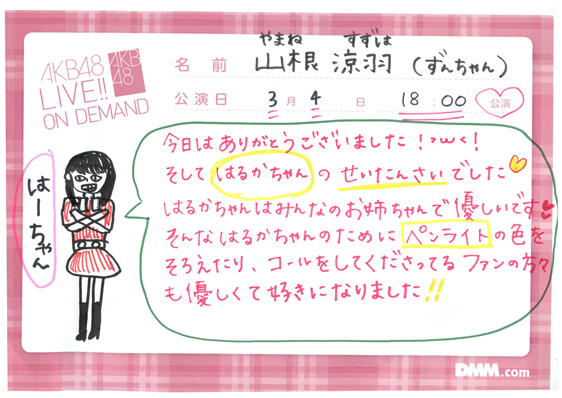 AKB48
LIVE!!
ON DEMAND
AKB
48
やまね すずは
名前 山根 涼羽 (ずんちゃん)
公演日 3月4日 18:00 公演
今日はありがとうございました!>ω<!
そして はるかちゃん の せいたんさい でした
はるかちゃんはみんなのお姉ちゃんで優しいです
そんなはるかちゃんのために ペンライト の色を
そろえたり、コールをしてくださってるファンの方々
も優しくて好きになりました!!
はーちゃん
DMM.com